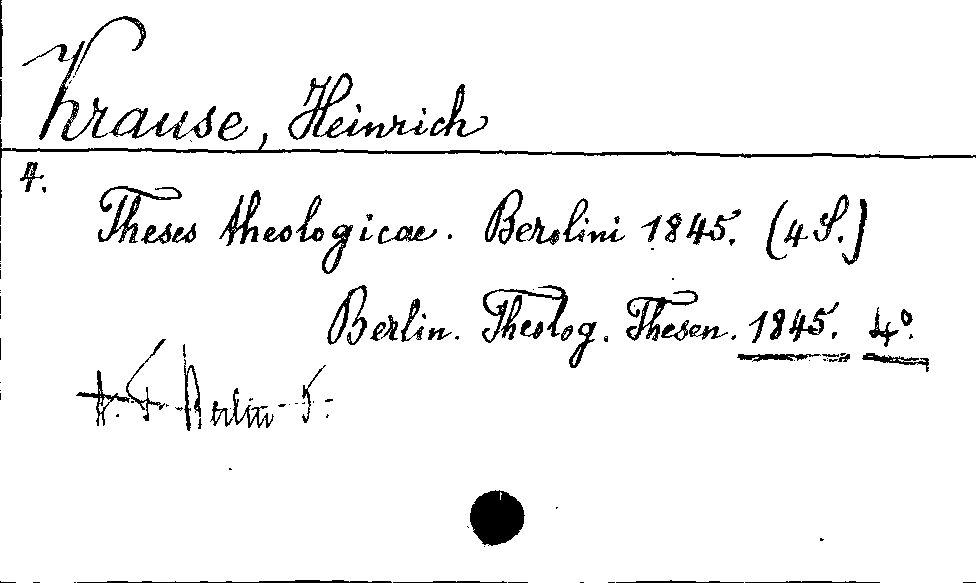 Krause, Heinrich
4.
Theses theologicae. Berolini 1845. (4 S.)
Berlin. Theolog. Thesen. 1845. 4°.
Berlin 5.